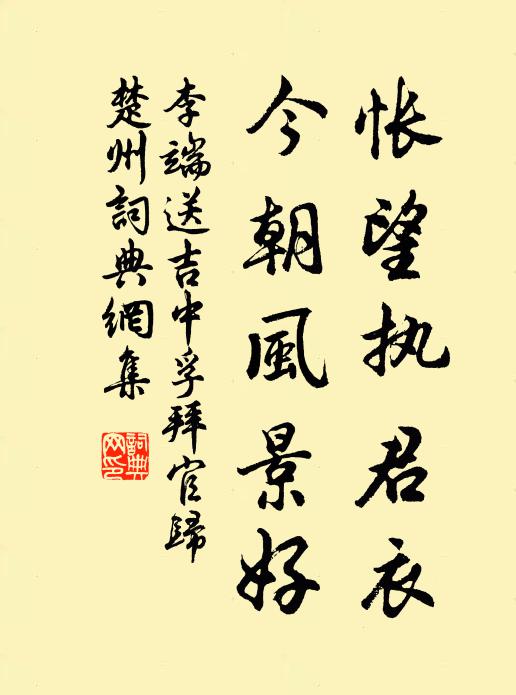 怅望执君衣
今朝風景好
李端送吉中孚拜官歸
楚州詞典網集
詞典網印